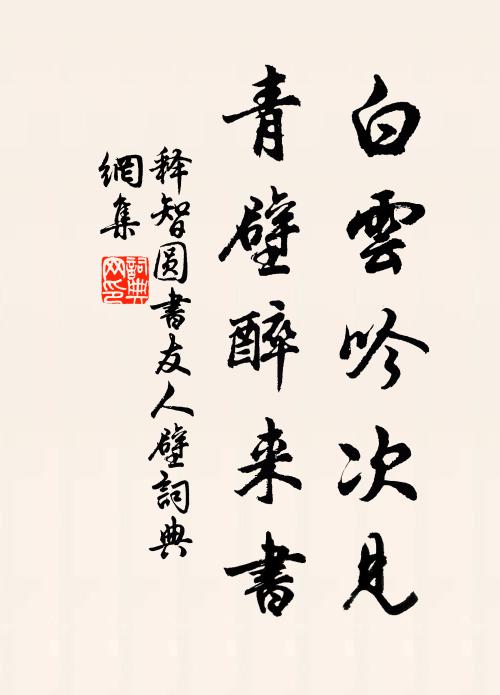 白雲吟次見
青壁醉来書
释智圆書友人壁詞典
網集
詞典
网印